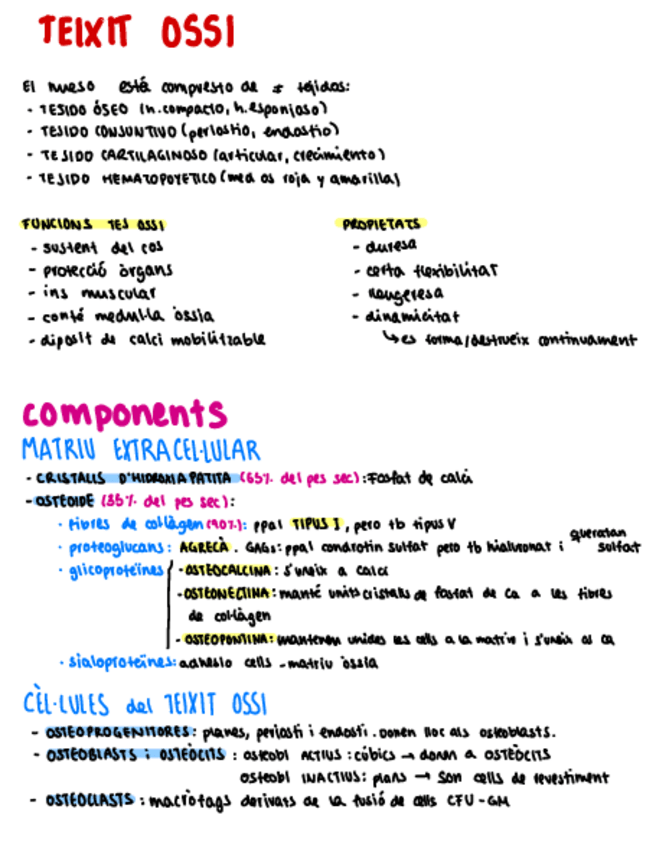 TEIXIT OSSI
El hueso está compuesto de ≠ tejidos:
- TESIDO ÓSEO (h. compacto, h. esponjoso)
- TEJIDO CONJUNTIVO (periostio, endostio)
- TEJIDO CARTILAGINOSO (articular, crecimiento)
- TEJIDO HEMATOPOYETICO (med os roja y amarilla)
FUNCIONS TEJ OSSI
- sustent del cos
- protecció òrgans
- ins muscular
- conté medul·la òssia
- diposit de calci mobilitzable
PROPIETATS
- duresa
- certa flexibilitat
- lleugeresa
- dinamicitat
↳ es forma/destrueix continuament
components
MATRIU EXTRACEL·LULAR
- CRISTALLS D'HIDROXIAPATITA (65% del pes sec): Fosfat de calci
- OSTEOIDE (35% del pes sec):
· Fibres de col·làgen (90%): ppal TIPUS I, pero tb tipus V
· proteoglucans: AGRECÀ. GAGs: ppal condrotin sulfat pero tb hialuronat i queratan sulfat
· glicoproteïnes - OSTEOCALCINA: s'uneix a calci
- OSTEONECTINA: manté units cristalls de fosfat de ca a les fibres
de col·làgen
- OSTEOPONTINA: mantenen unides les cells a la matriu i s'uneix al ca
· sialoproteïnes: adhesio cells - matriu òssia
CÈL·LULES del TEIXIT OSSI
- OSTEOPROGENITORES: planes, periosti i endosti. Donen lloc als osteoblasts.
- OSTEOBLASTS i OSTEÒCITS: osteobl ACTIUS: cúbics → donen a OSTEÒCITS
osteobl INACTIUS: plans → Són cells de revestiment
- OSTEOCLASTS: macròfags derivats de la fusió de cells CFU-GM